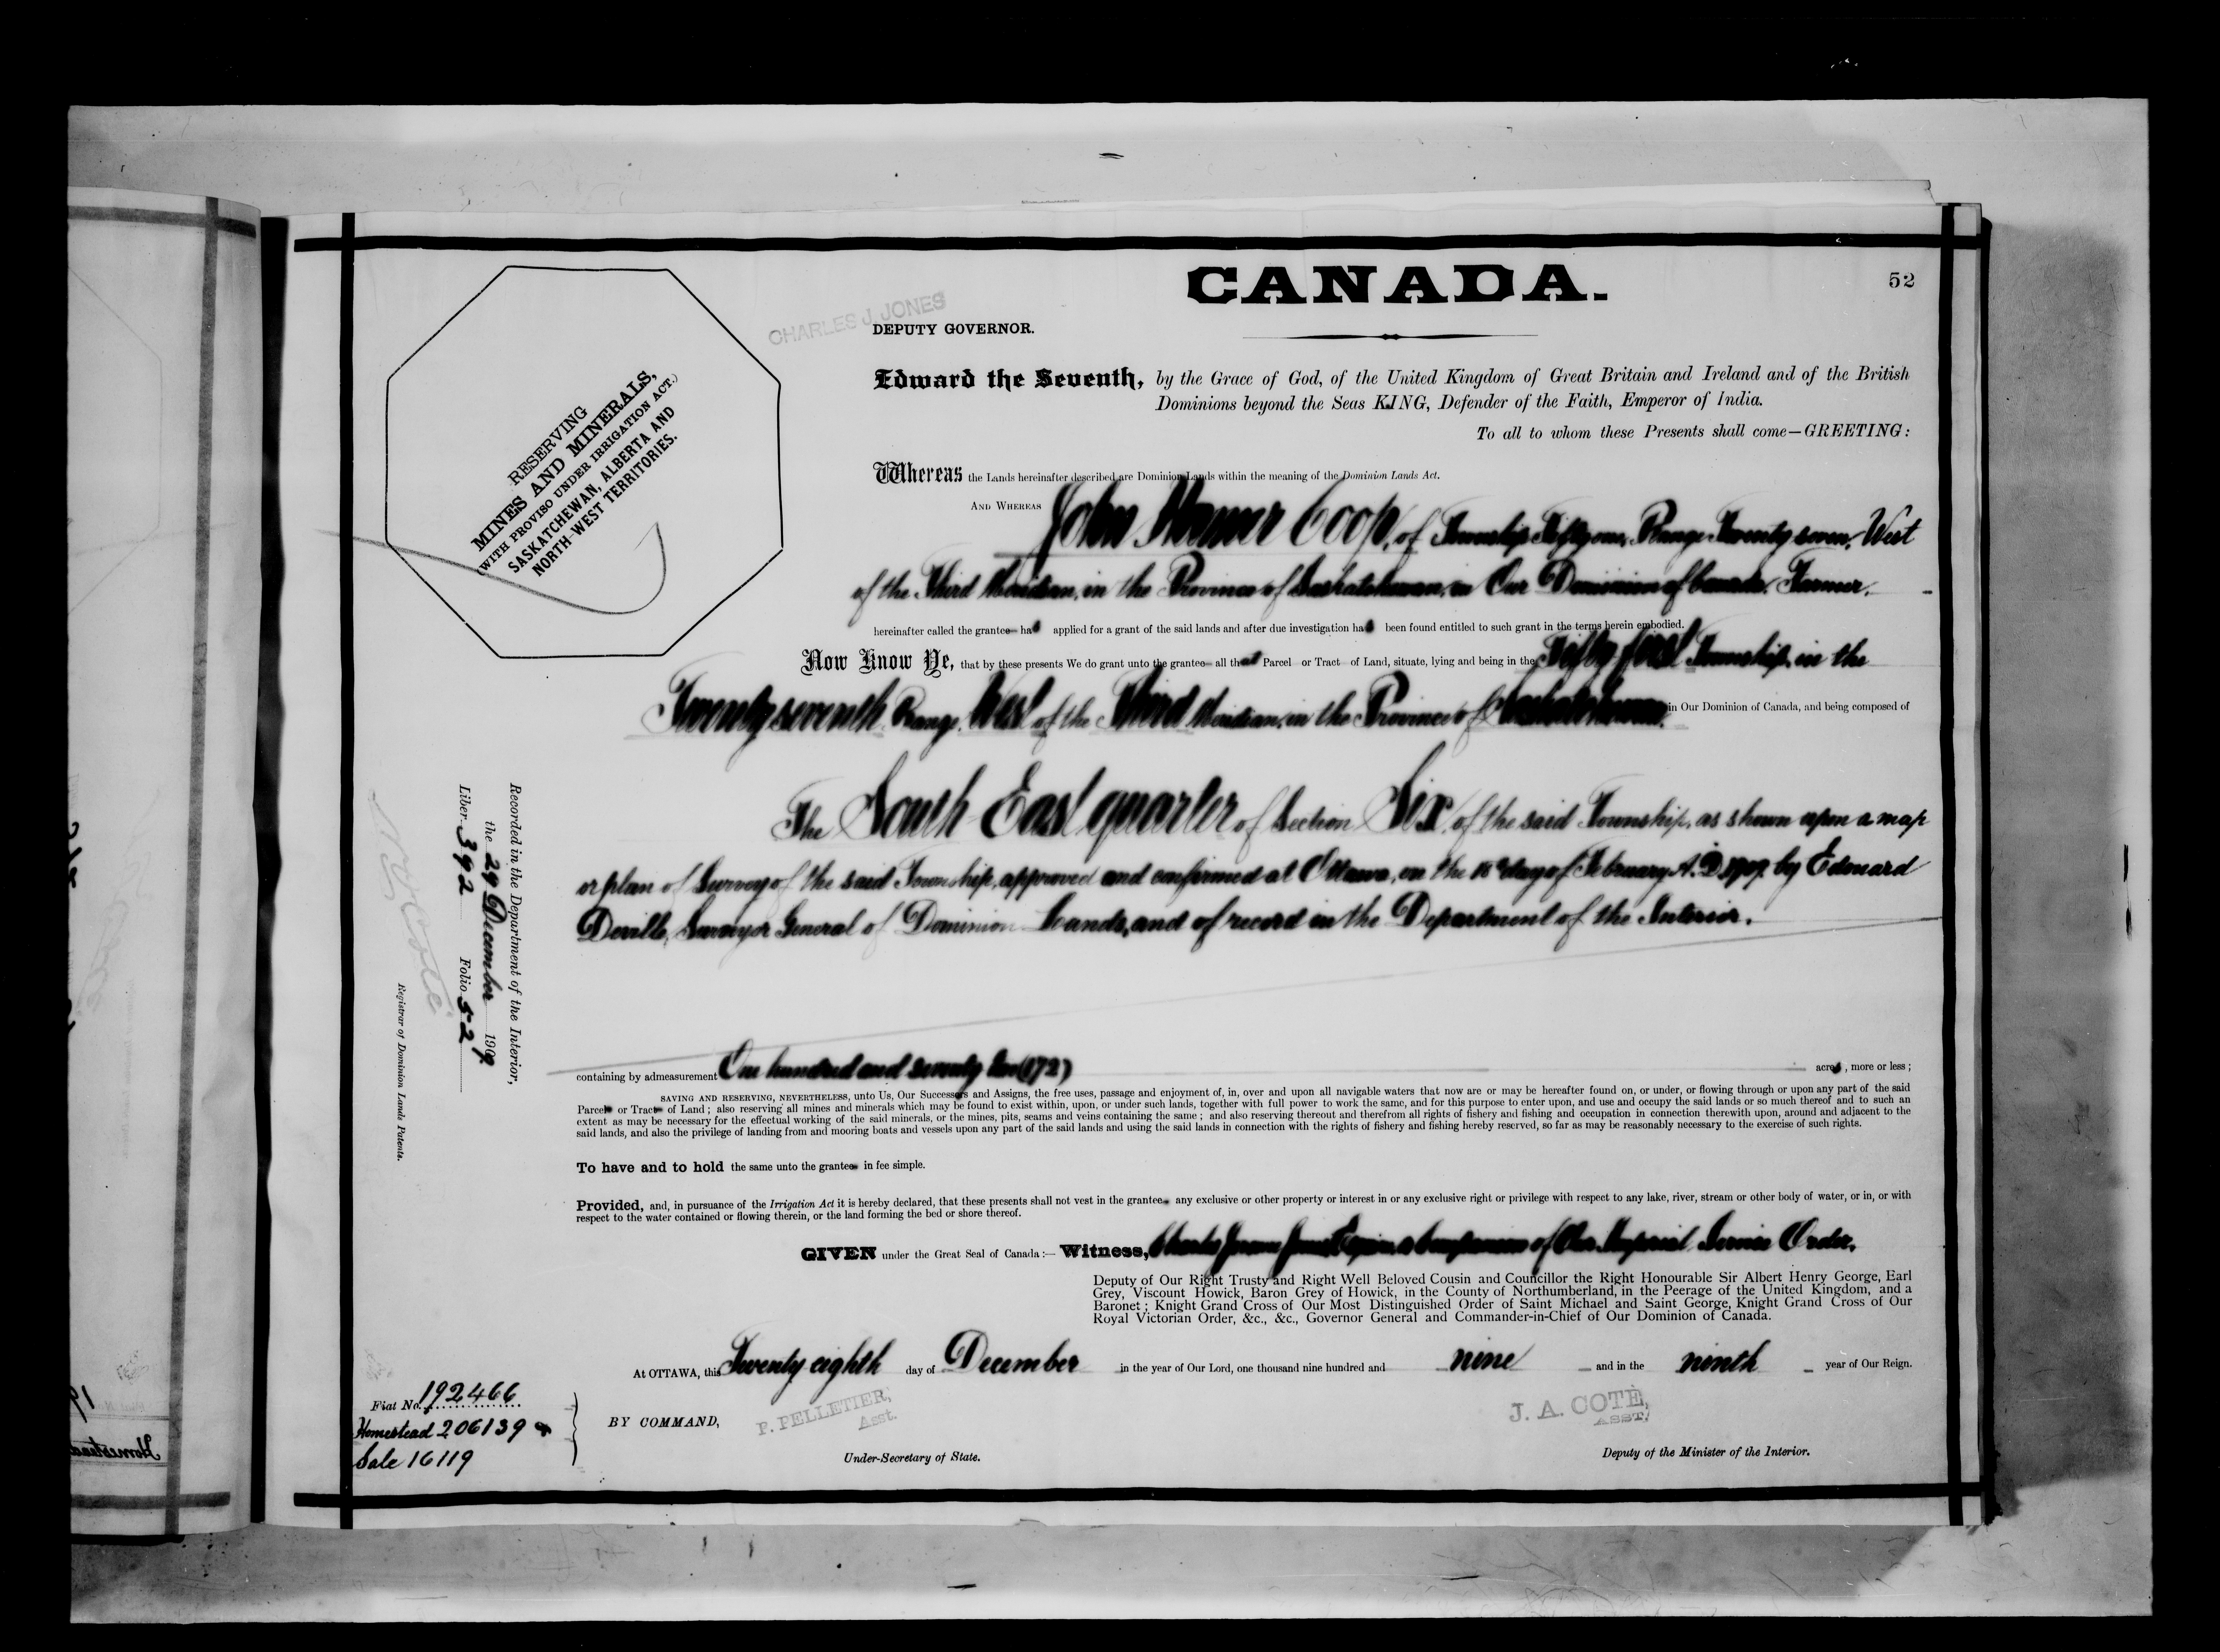 CANADA.
52
CHARLES J. JONES
DEPUTY GOVERNOR.
RESERVING
MINES AND MINERALS,
(WITH PROVISO UNDER IRRIGATION ACT.)
SASKATCHEWAN, ALBERTA AND
NORTH-WEST TERRITORIES.
Edward the Seventh, by the Grace of God, of the United Kingdom of Great Britain and Ireland and of the British
Dominions beyond the Seas KING, Defender of the Faith, Emperor of India.
To all to whom these Presents shall come—GREETING:
Whereas the Lands hereinafter described are Dominion Lands within the meaning of the Dominion Lands Act.
AND WHEREAS John Coop, of Township Fifty one, Range Twenty seven, West
of the Third Meridian, in the Province of Saskatchewan, in Our Dominion of Canada, Farmer,
hereinafter called the grantee has applied for a grant of the said lands and after due investigation has been found entitled to such grant in the terms herein embodied.
Now Know Ye, that by these presents We do grant unto the grantee all that Parcel or Tract of Land, situate, lying and being in the Fifty first Township, in the
Twenty seventh Range, West of the Third Meridian, in the Province of Saskatchewan, in Our Dominion of Canada, and being composed of
The South East quarter of Section Six, of the said Township, as shown upon a map
or plan of Survey of the said Township, approved and confirmed at Ottawa, on the day of February A.D. 1909, by Edouard
Deville, Surveyor General of Dominion Lands, and of record in the Department of the Interior.
containing by admeasurement One hundred and seventy two (172) acres, more or less;
SAVING AND RESERVING, NEVERTHELESS, unto Us, Our Successors and Assigns, the free uses, passage and enjoyment of, in, over and upon all navigable waters that now are or may be hereafter found on, or under, or flowing through or upon any part of the said
Parcel or Tract of Land; also reserving all mines and minerals which may be found to exist within, upon, or under such lands, together with full power to work the same, and for this purpose to enter upon, and use and occupy the said lands or so much thereof and to such an
extent as may be necessary for the effectual working of the said minerals, or the mines, pits, seams and veins containing the same; and also reserving thereout and therefrom all rights of fishery and fishing and occupation in connection therewith upon, around and adjacent to the
said lands, and also the privilege of landing from and mooring boats and vessels upon any part of the said lands and using the said lands in connection with the rights of fishery and fishing hereby reserved, so far as may be reasonably necessary to the exercise of such rights.
To have and to hold the same unto the grantee in fee simple.
Provided, and, in pursuance of the Irrigation Act it is hereby declared, that these presents shall not vest in the grantee any exclusive or other property or interest in or any exclusive right or privilege with respect to any lake, river, stream or other body of water, or in, or with
respect to the water contained or flowing therein, or the land forming the bed or shore thereof.
GIVEN under the Great Seal of Canada:— Witness, Charles Jones Esquire, a Companion of Our Imperial Service Order,
Deputy of Our Right Trusty and Right Well Beloved Cousin and Councillor the Right Honourable Sir Albert Henry George, Earl
Grey, Viscount Howick, Baron Grey of Howick, in the County of Northumberland, in the Peerage of the United Kingdom, and a
Baronet; Knight Grand Cross of Our Most Distinguished Order of Saint Michael and Saint George, Knight Grand Cross of Our
Royal Victorian Order, &c., &c., Governor General and Commander-in-Chief of Our Dominion of Canada.
At OTTAWA, this Twenty eighth day of December in the year of Our Lord, one thousand nine hundred and nine and in the ninth year of Our Reign.
BY COMMAND,
P. PELLETIER,
Asst.
Under-Secretary of State.
J. A. COTE,
ASST.
Deputy of the Minister of the Interior.
Fiat No. 192466
Homestead 206139
Sale 16119
Recorded in the Department of the Interior,
the 29 December 1909
Liber 392 Folio 52
Registrar of Dominion Lands Patents.
Homestead